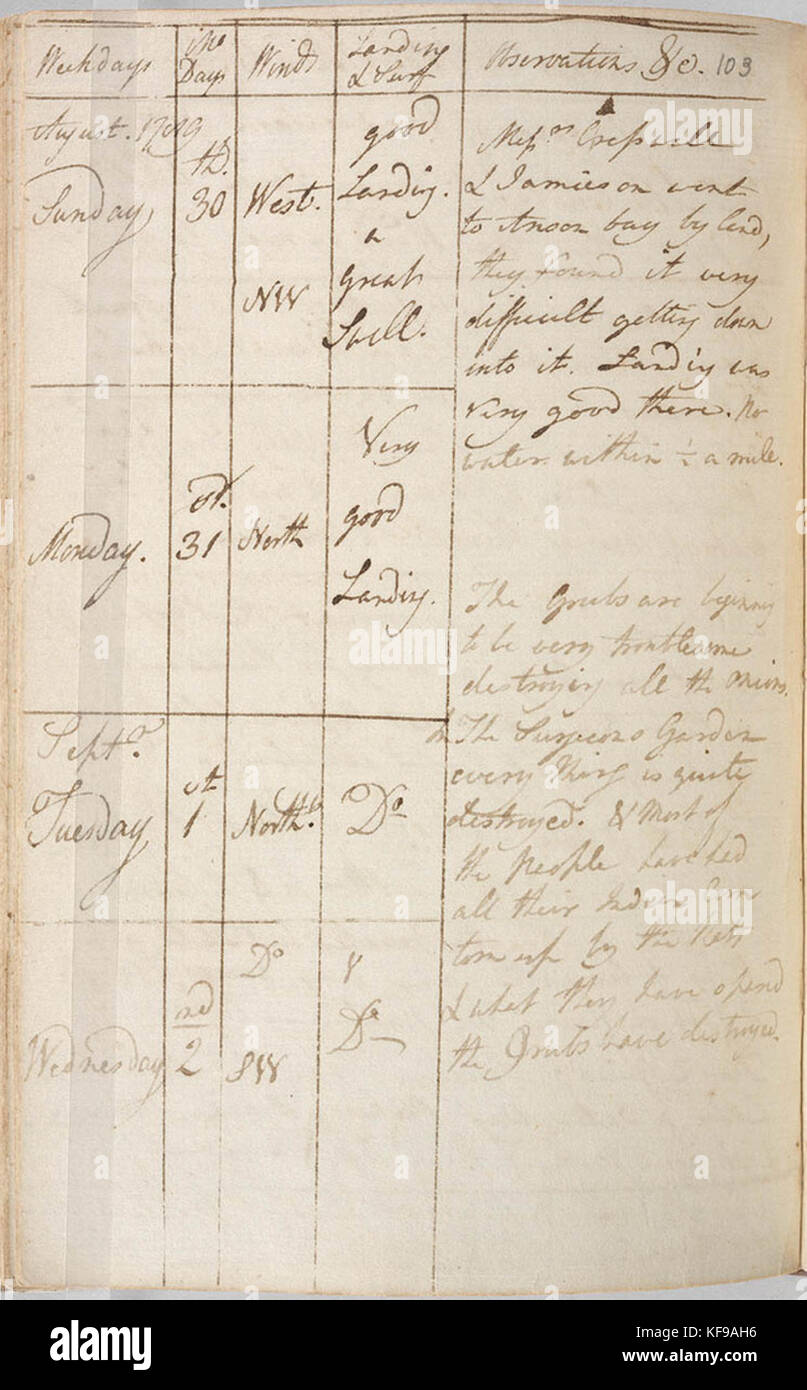 Weekdays
Mo Days
Winds
Landing & Surf
Observations &c. 103
August. 1789
Sunday
th. 30
West.
NW
good
Landing.
a
great
Swell.
Messrs Cresswell
& Jamieson went
to Anson bay by land,
they found it very
difficult getting down
into it. Landing was
very good there. No
water within ½ a mile.
Monday.
st. 31
North
Very
good
Landing.
The Grubs are beginning
to be very troublesome
destroying all the
Septr.
Tuesday
st 1
North
Do
In The Surgeons Garden
every thing is quite
destroyed. & Most of
the People have had
all their Indian Corn
torn up by the Rats
& what they have
the Grubs have destroyed.
Wednesday
nd 2
Do
SW
&
Do
alamy
a
alamy
Image ID: KF9AH6
www.alamy.com